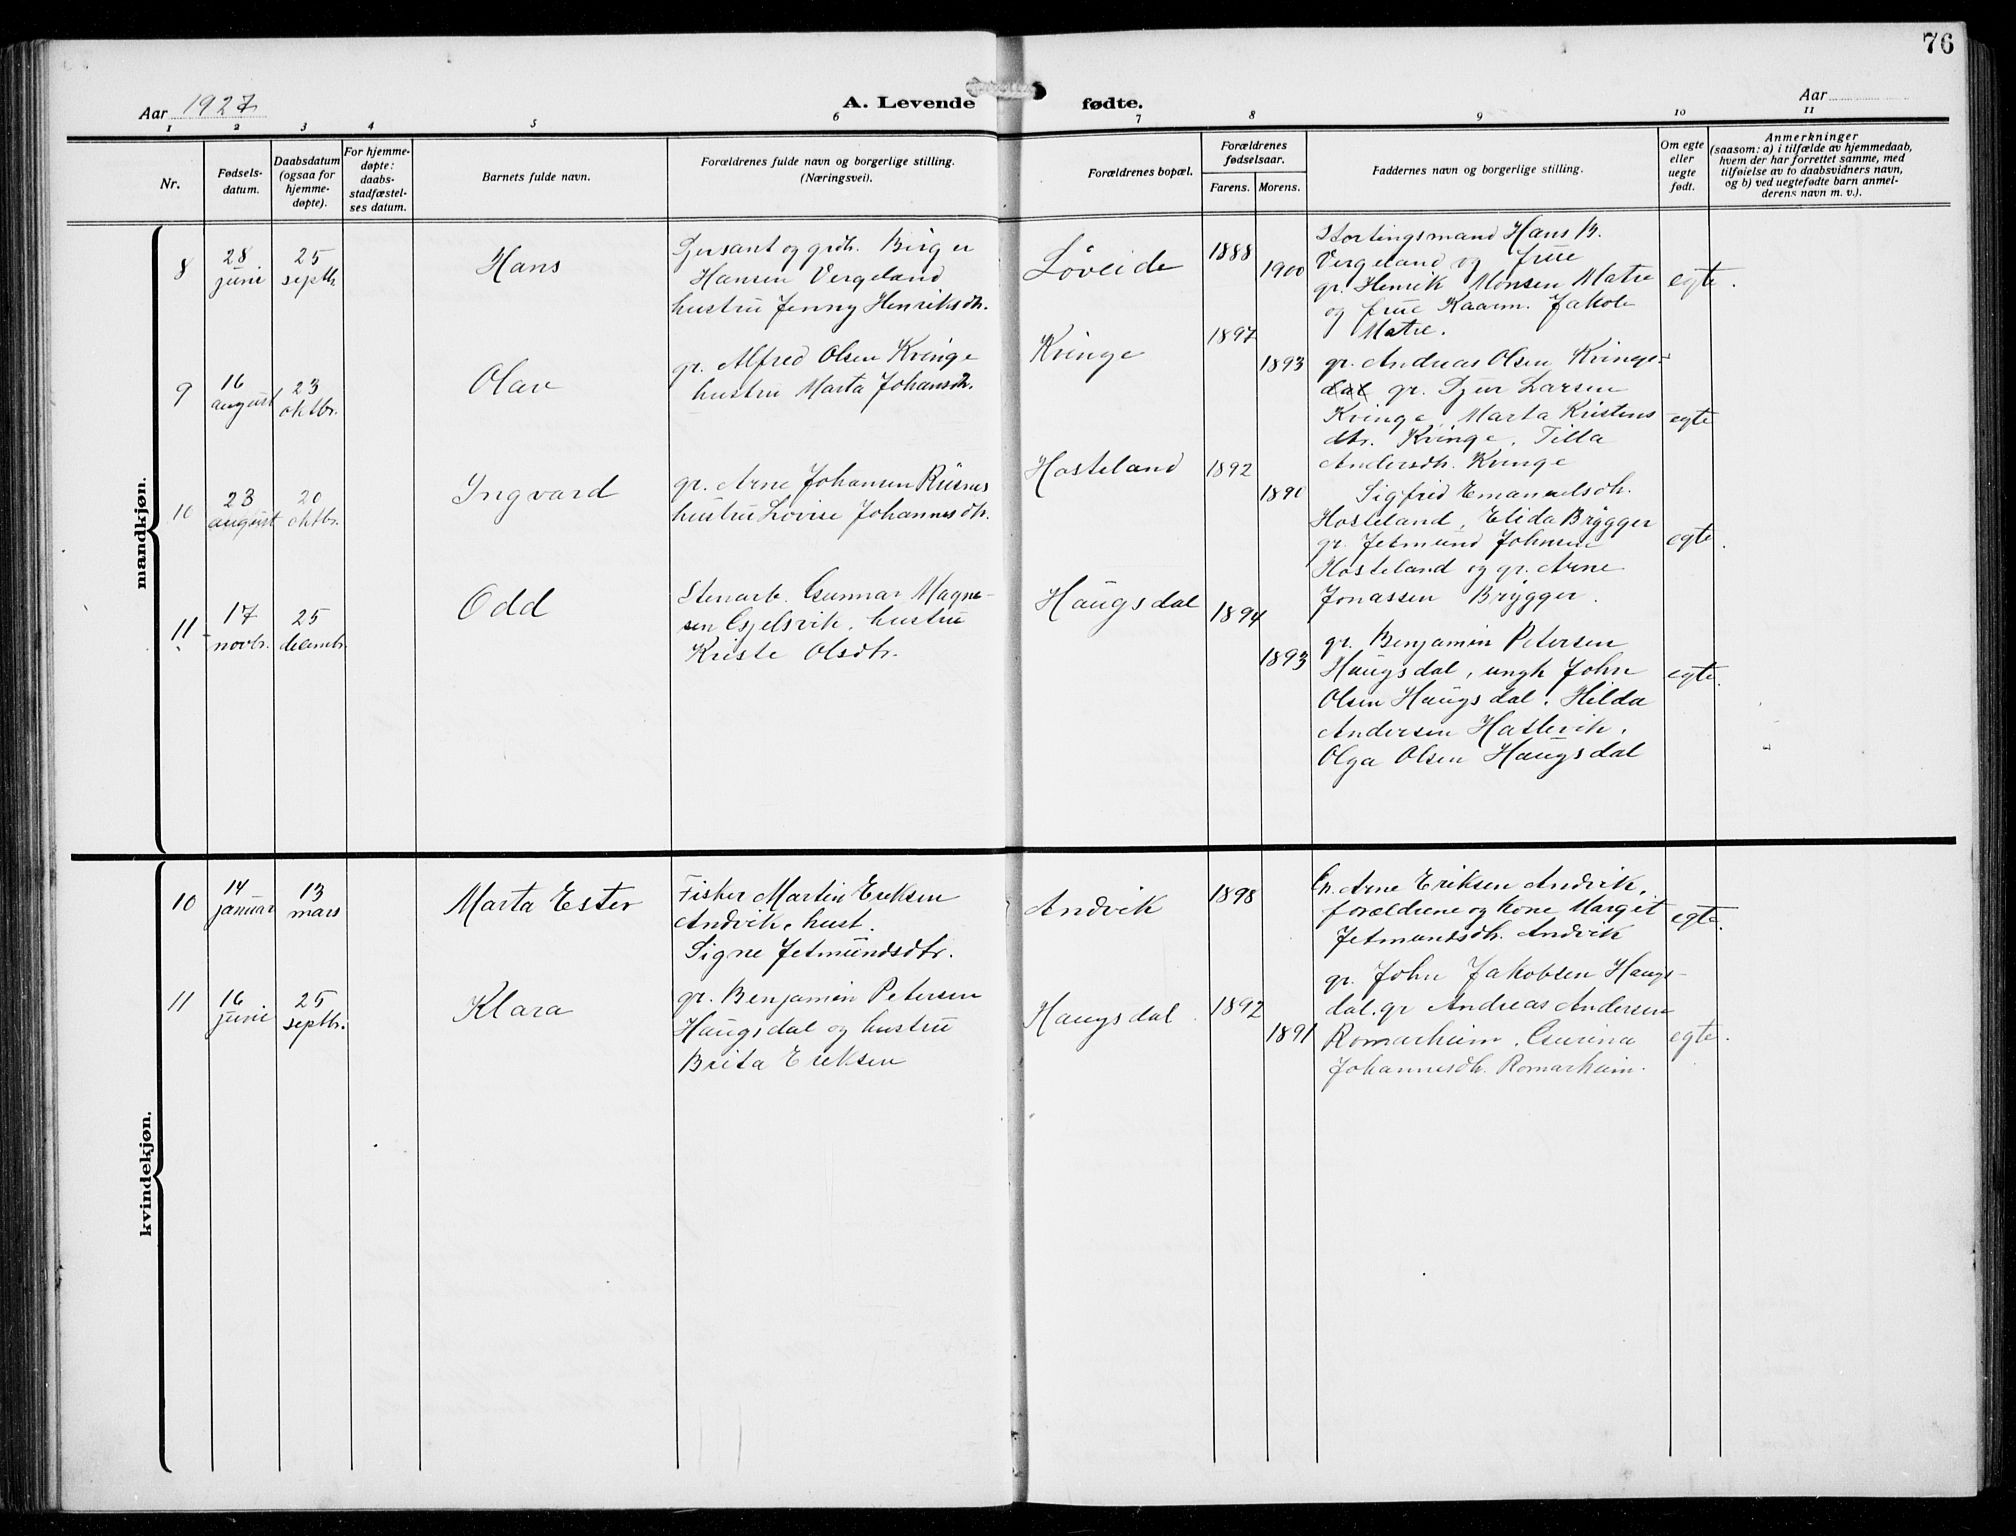 76
Aar 1927
A. Levende fødte.
Aar
1 2 3 4 5 6 7 8 9 10 11
Nr.
Fødsels-
datum.
Daabsdatum
(ogsaa for
hjemme-
døpte).
For hjemme-
døpte:
daabs-
stadfæstel-
ses datum.
Barnets fulde navn.
Forældrenes fulde navn og borgerlige stilling.
(Næringsvei).
Forældrenes bopæl.
Forældrenes
fødselsaar.
Farens. Morens.
Faddernes navn og borgerlige stilling.
Om egte
eller
uegte
født.
Anmerkninger
(saasom: a) i tilfælde av hjemmedaab,
hvem der har forrettet samme, med
tilføielse av to daabsvidners navn,
og b) ved uegtefødte barn anmel-
derens navn m. v.).
mandkjøn.
8
28
juni
25
septb.
Hans
og grdr. Birger
Hansen Vergeland
hustru Jenny Henriksdtr.
Løveide
1888
1900
Stortingsmand Hans B.
Vergeland og frue
gr. Henrik Monsen Matre
og frue Kaarm. Jakob
Matre.
egte.
9
16
august
23
oktbr.
Olav
gr. Alfred Olsen Kvinge
hustru Marta Johansdtr.
Kvinge
1897
1893
gr. Andreas Olsen Kvings-
dal gr. Sjur Larsen
Kvinge, Marta Kristens
dtr. Kvinge, Tilla
Andersdtr. Kvinge
egte
10
23
august
20
oktbr.
Ingvard
gr. Arne Johansen Risnes
hustru Lovise Johannesdtr.
Hosteland
1892
1890
Sigfrid Emanuelsdtr.
Hosteland, Elida Brygger
gr. Jetmund Johnsen
Hosteland og gr. Arne
Jonassen Brygger.
egte.
11
17
novbr.
25
decembr.
Odd
Stenarb. Gunnar Magne-
sen Gjelsvik, hustru
Kriste Olsdtr.
Haugsdal
1894
1893
gr. Benjamin Petersen
Haugsdal, ungk John
Olsen Haugsdal. Hilda
Andersen Hatlevik,
Olga Olsen Haugsdal
egte.
kvindekjøn.
10
14
januar
13
mars
Marta Ester
Fisker Martin Eriksen
Andvik, hust.
Signe Jetmundsdtr.
Andvik
1898
Arne Eriksen Andvik,
forældrene og kone Margit
Jetmundsdtr. Andvik
egte.
11
16
juni
25
septbr.
Klara
gr. Benjamin Petersen
Haugsdal og hustru
Brita Eriksen
Haugsdal.
1892
1891
gr. John Jakobsen Haugs-
dal. gr Andreas Andersen
Romarheim, Gurina
Johannesdtr. Romarheim.
egte.